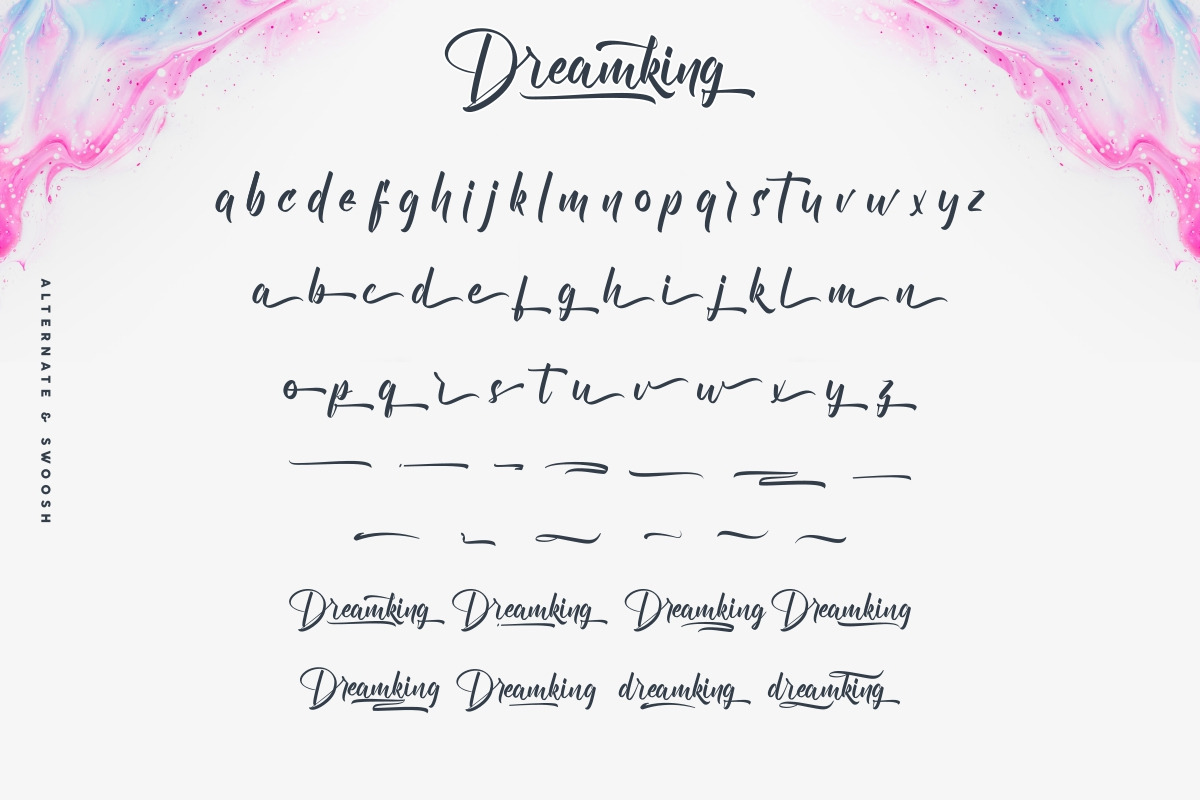 Dreamking
a b c d e f g h i j k l m n o p q r s t u v w x y z
a b c d e f g h i j k l m n
o p q r s t u v w x y z
ALTERNATE & SWOOSH
Dreamking Dreamking Dreamking Dreamking
Dreamking Dreamking dreamking dreamking